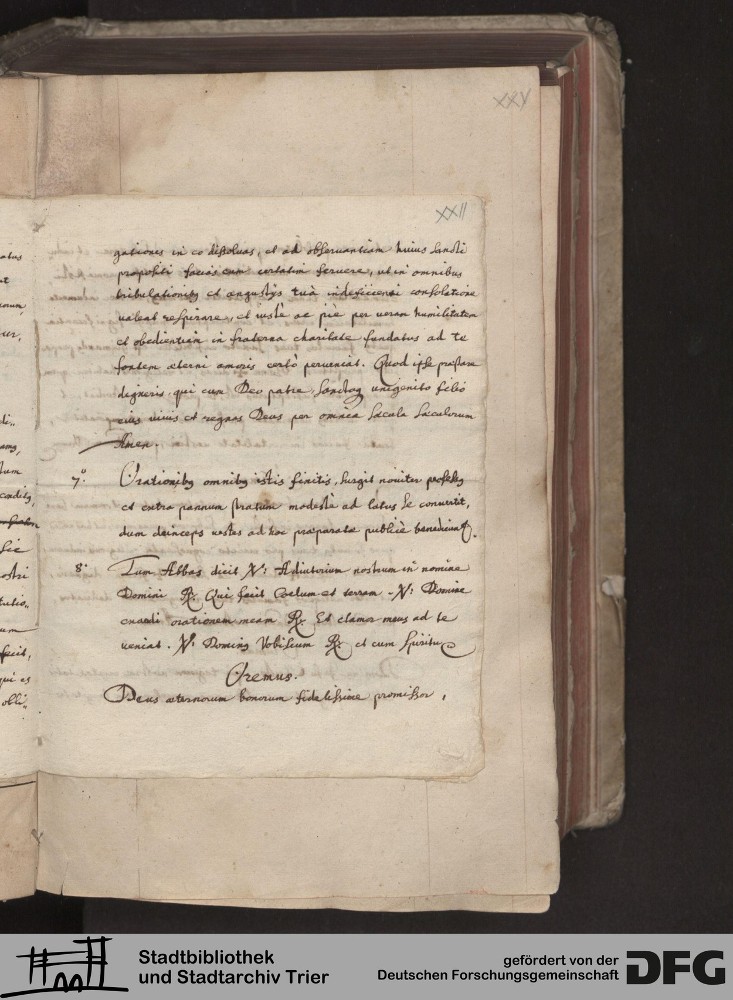 XXV
XXII
gationes in eo dissoluas, et ad obseruantiam huius Sancti
propositi facias eum certatim feruere, ut in omnibus
tribulationibȝ et angustijs tuâ indeficienti consolatione
ualeat respirare, et iustè ac pie per ueram humilitatem
et obedientiam in fraterna charitate fundatus ad te
fontem æterni amoris certò perueniat. Quod ipse præstare
digneris, qui cum Deo patre, unigenito filio
eius uiuis et regnas Deus per omnia sæcula sæculorum
Amen.
7.º Orationibȝ omnibȝ istis finitis, surgit nouiter professȝ
et extra pannum stratum modestè ad latus se conuertit,
dum deinceps uestes ad hoc præparatæ publicè
8.º Tum Abbas dicit ℣: Adiutorium nostrum in nomine
Domini ℞. Qui fecit Coelum et terram. ℣: Domine
exaudi orationem meam ℞ Et clamor meus ad te
ueniat. ℣: Dominȝ Vobiscum ℞ et cum Spiritu
Oremus.
Deus æternorum bonorum fidelissime promissor,
atus
di„
ostri
um
fecit,
qui es
olli„
Stadtbibliothek
und Stadtarchiv Trier
gefördert von der
Deutschen Forschungsgemeinschaft
DFG